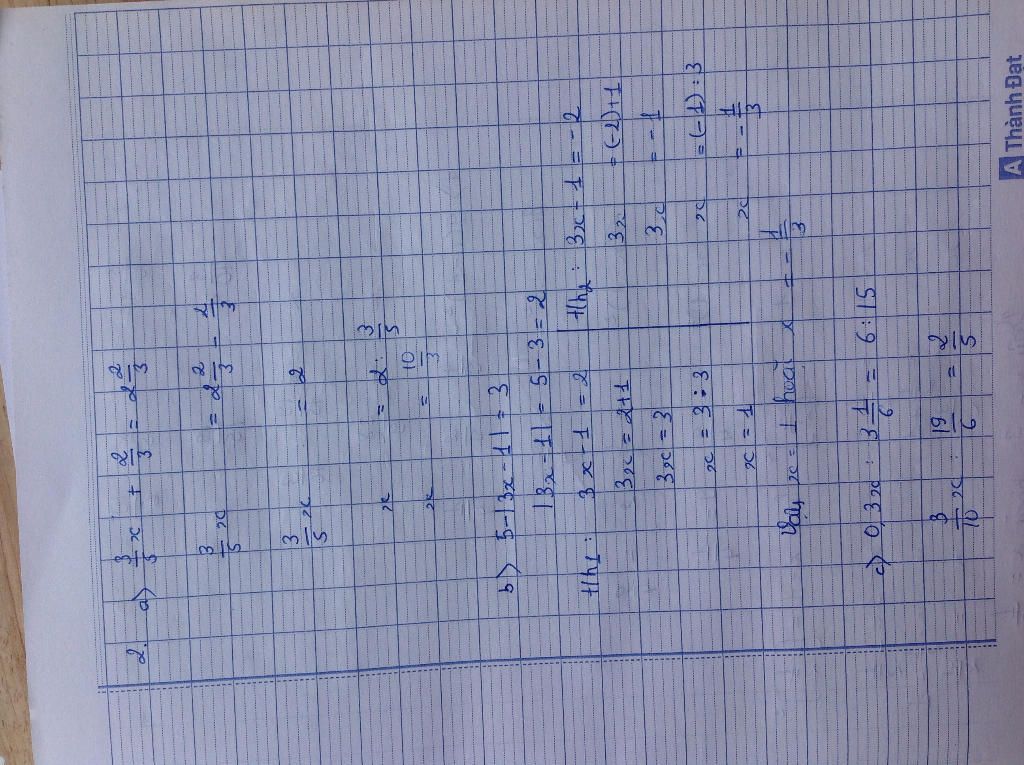 2. a) 3/5 x + 2/3 = 2 2/3
3/5 x = 2 2/3 - 2/3
3/5 x = 2
x = 2 : 3/5
x = 10/3
b) 5 - |3x - 1| = 3
|3x - 1| = 5 - 3 = 2
th1: 3x - 1 = 2
3x = 2+1
3x = 3
x = 3 : 3
x = 1
th2: 3x - 1 = -2
3x = (-2)+1
3x = -1
x = (-1) : 3
x = -1/3
Vậy x = 1 hoặc x = -1/3
c) 0,3x : 3 1/6 = 6 : 15
3/10 x : 19/6 = 2/5
A Thành Đạt